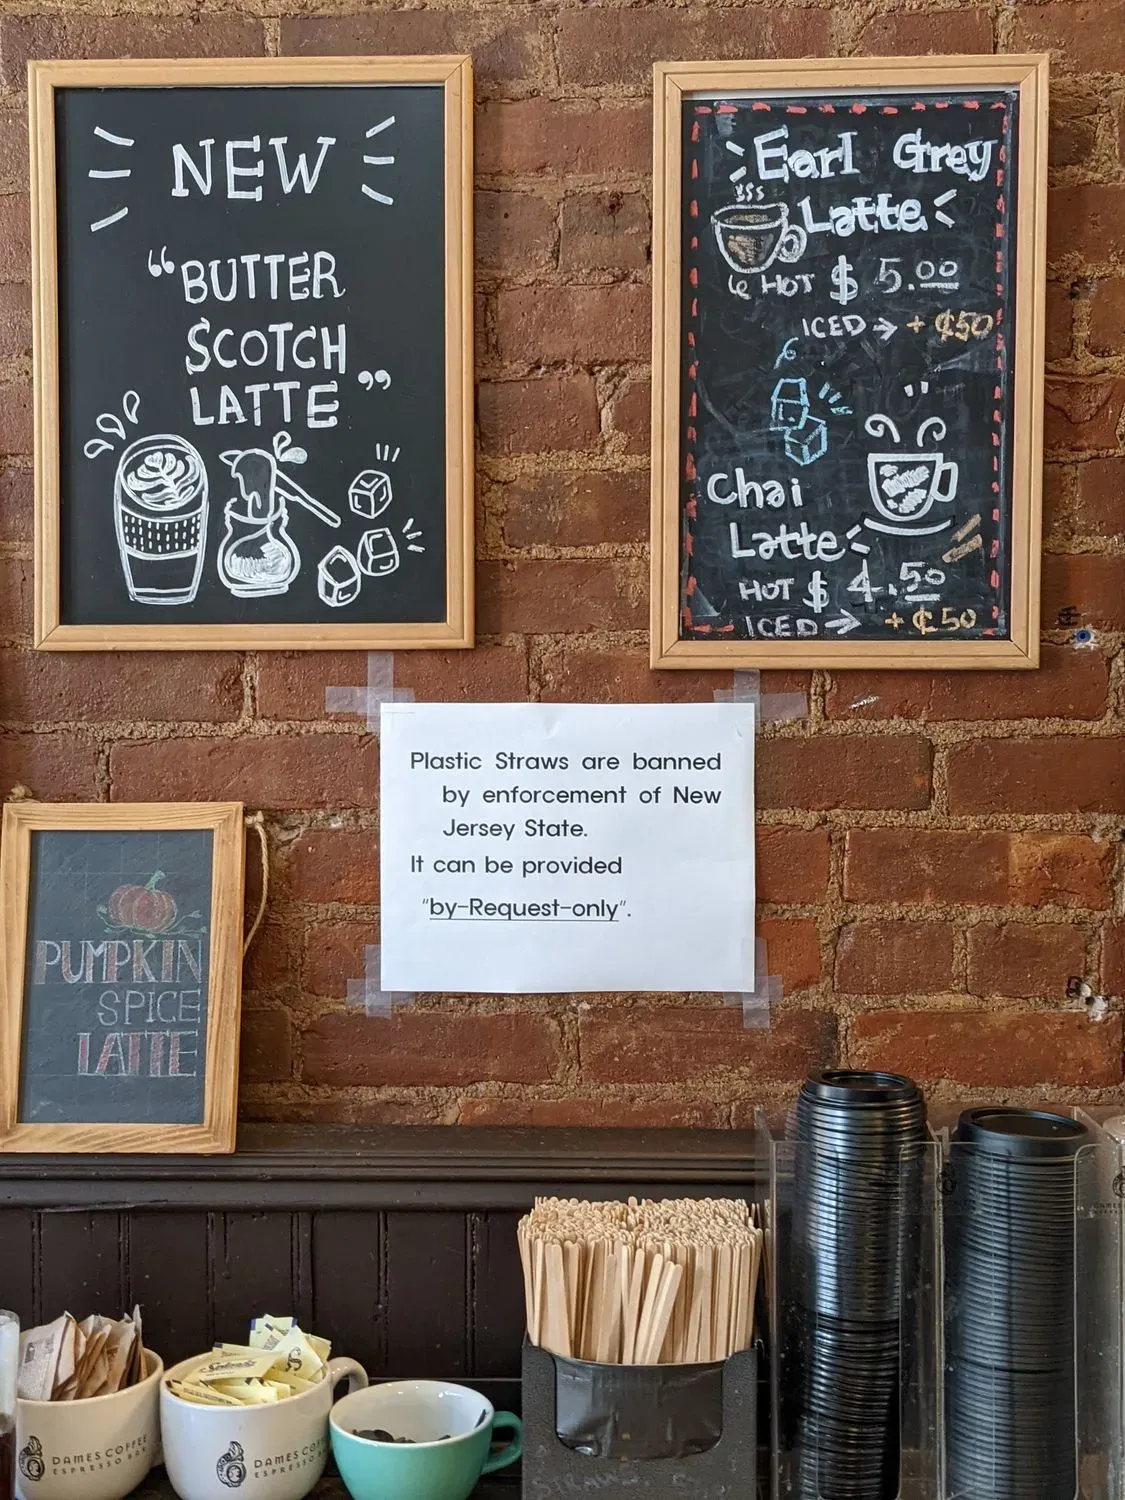 NEW
“BUTTER
SCOTCH
LATTE”
Earl Grey
Latte
HOT $ 5.00
ICED → + ₵50
Chai
Latte
HOT $ 4.50
ICED → + ₵50
Plastic Straws are banned
by enforcement of New
Jersey State.
It can be provided
“by-Request-only”.
PUMPKIN
SPICE
LATTE
DAMES COFFEE
ESPRESSO BAR
Splenda
DAMES COFFEE
ESPRESSO BAR